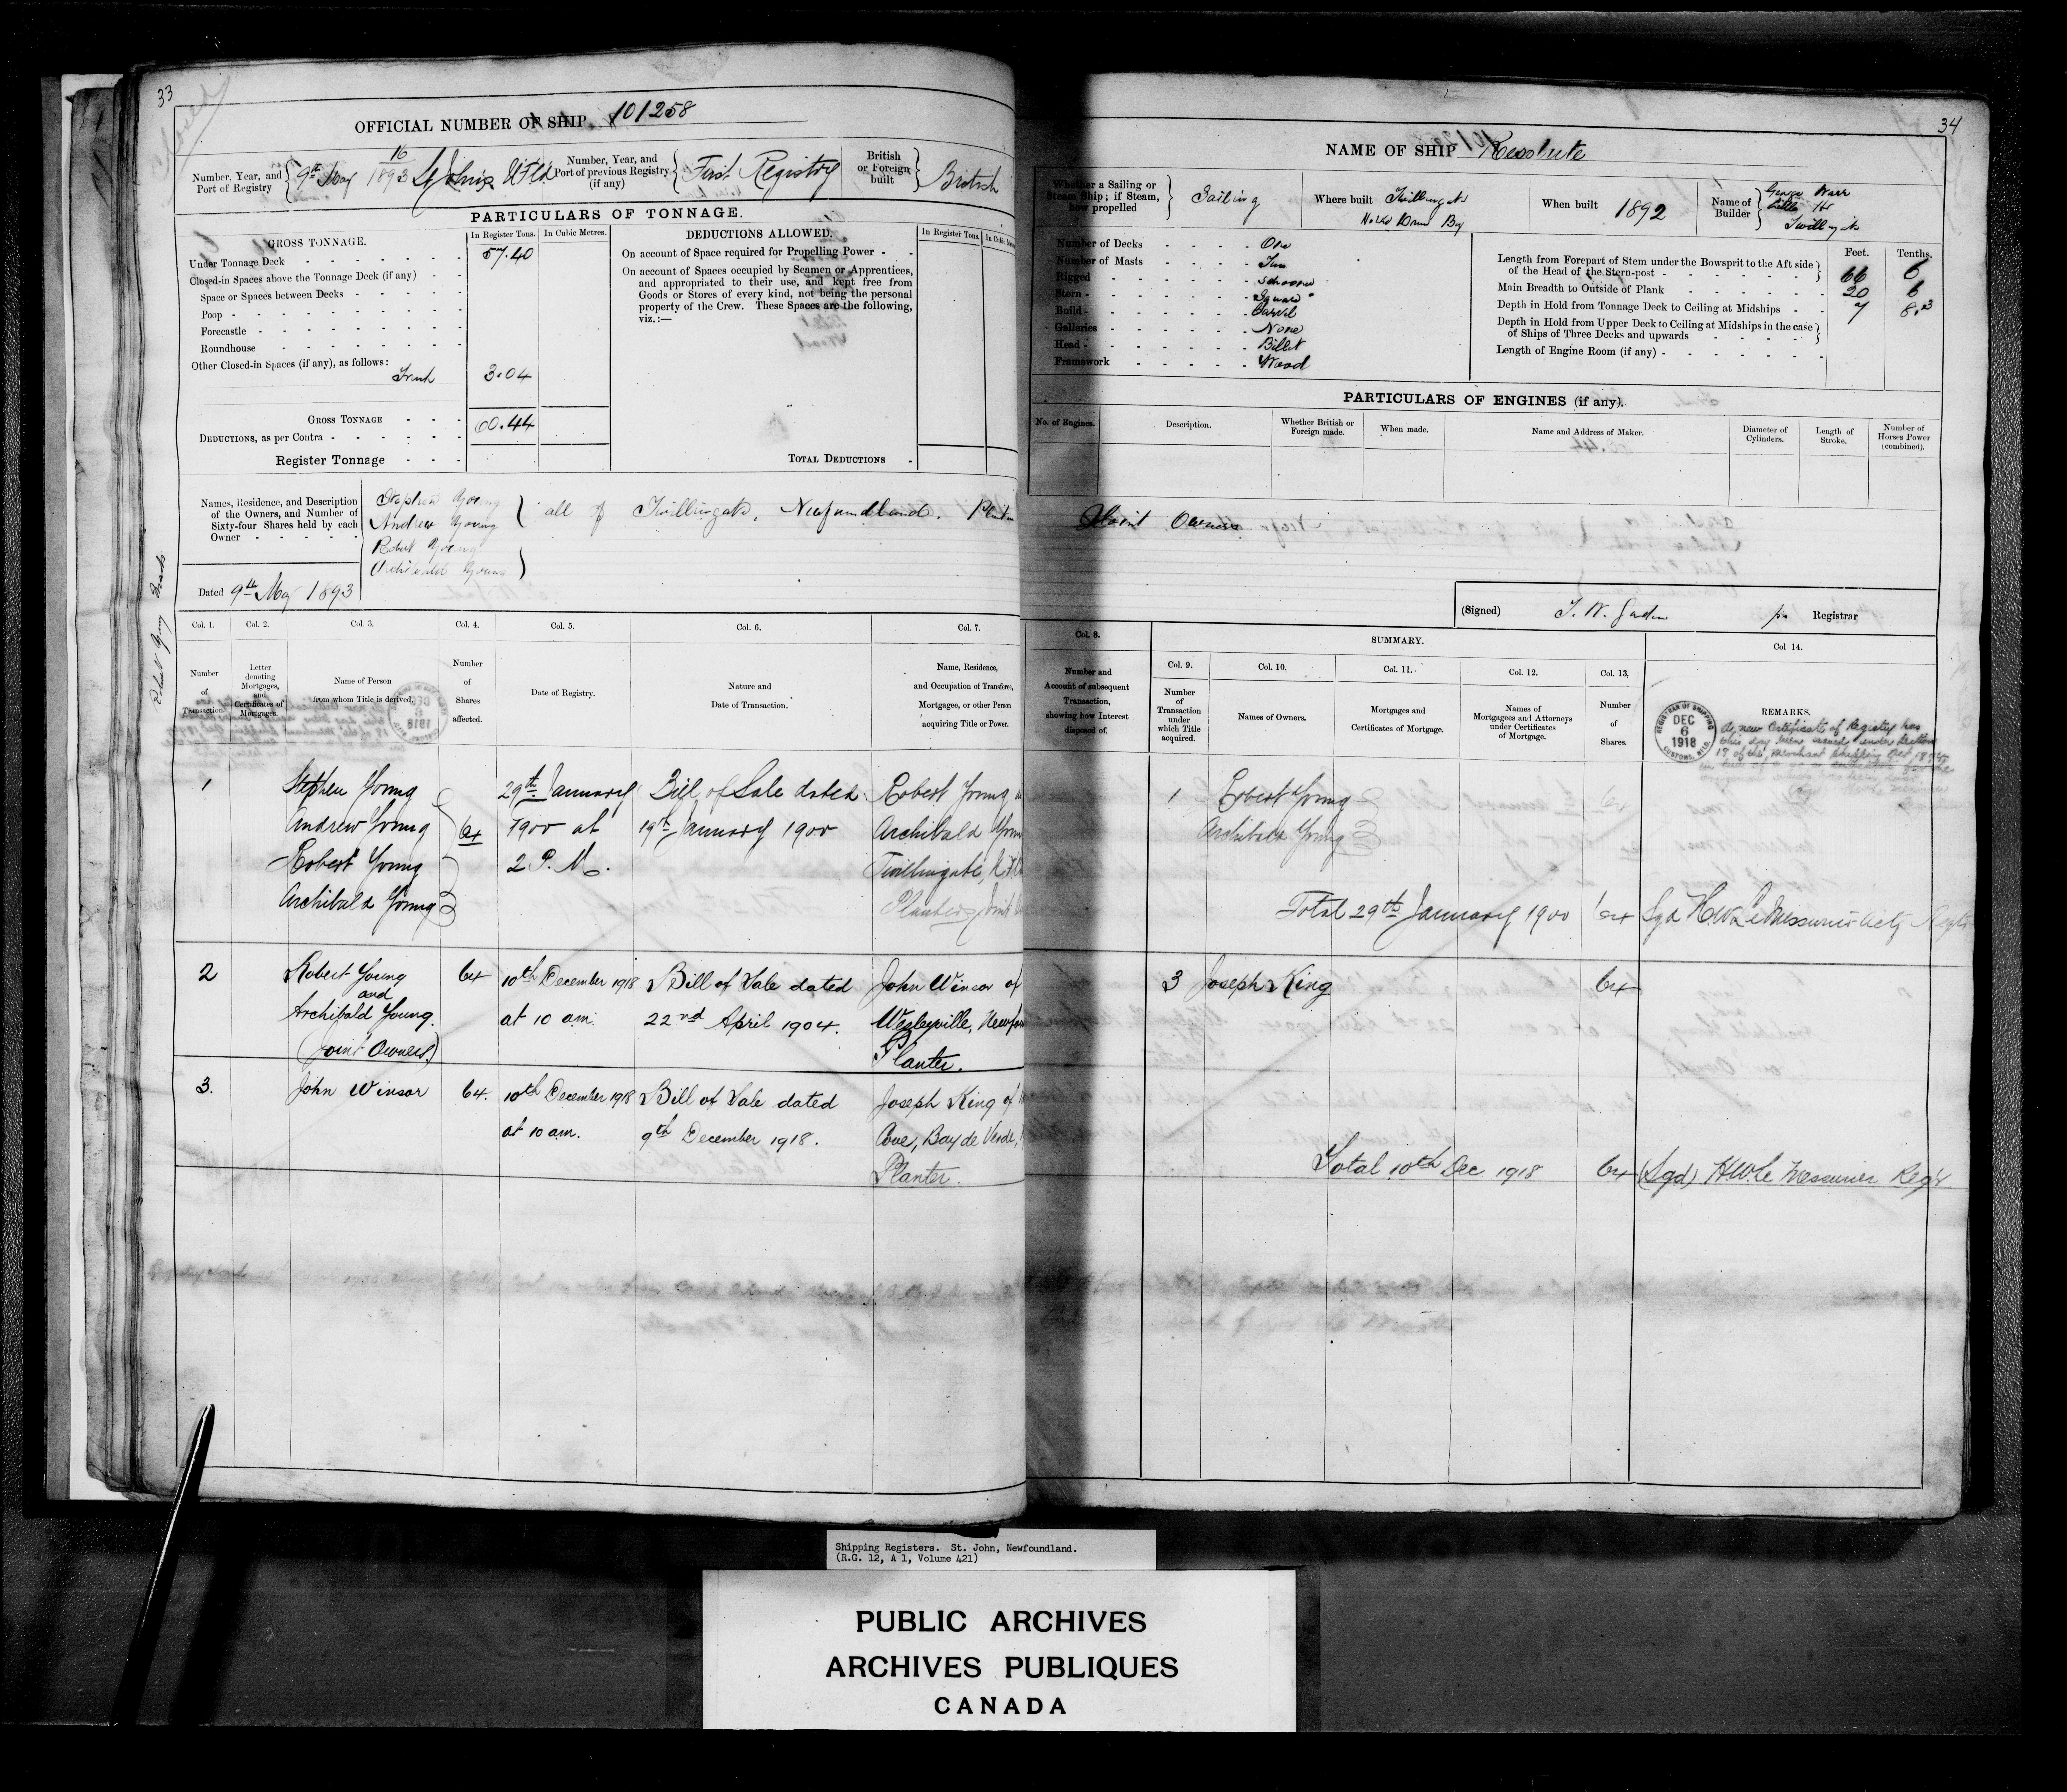 33
OFFICIAL NUMBER OF SHIP 101258
Number, Year, and Port of Registry
16
9th May 1893 St John's Nfld
Number, Year, and Port of previous Registry (if any)
First Registry
British or Foreign built
British
PARTICULARS OF TONNAGE.
GROSS TONNAGE.
In Register Tons.
In Cubic Metres.
Under Tonnage Deck 57.40
Closed-in Spaces above the Tonnage Deck (if any)
Space or Spaces between Decks
Poop
Forecastle
Roundhouse
Other Closed-in Spaces (if any), as follows:
Trunk 3.04
GROSS TONNAGE 60.44
DEDUCTIONS, as per Contra
Register Tonnage
DEDUCTIONS ALLOWED.
In Register Tons.
On account of Space required for Propelling Power
On account of Spaces occupied by Seamen or Apprentices,
and appropriated to their use, and kept free from
Goods or Stores of every kind, not being the personal
property of the Crew. These Spaces are the following,
viz.:—
TOTAL DEDUCTIONS
Names, Residence, and Description
of the Owners, and Number of
Sixty-four Shares held by each
Owner
Stephen Young
Andrew Young
Robert Young
Archibald Young
all of Twillingate, Newfoundland.
Joint Owners
Dated 9th May 1893
Col. 1.
Number of Transaction.
Col. 2.
Letter denoting Mortgages, and Certificates of Mortgages.
Col. 3.
Name of Person from whom Title is derived.
Col. 4.
Number of Shares affected.
Col. 5.
Date of Registry.
Col. 6.
Nature and Date of Transaction.
Col. 7.
Name, Residence, and Occupation of Transferee, Mortgagee, or other Person acquiring Title or Power.
1
Stephen Young
Andrew Young
Robert Young
Archibald Young
64
29th January
1900 at
2 P.M.
Bill of Sale dated
19th January 1900
Robert Young
Archibald
Twillingate,
Planters Joint
2
Robert Young
and
Archibald Young.
(Joint Owners.)
64
10th December 1918
at 10 am.
Bill of Sale dated
22nd April 1904.
John Winsor of
Wesleyville,
Planter.
3.
John Winsor
64.
10th December 1918
at 10 am.
Bill of Sale dated
9th December 1918.
Joseph King of
Cove, Bay de Verde,
Planter.
34
NAME OF SHIP Resolute
Whether a Sailing or Steam Ship; if Steam, how propelled
Sailing
Where built
Twillingate
Notre Dame Bay
When built 1892
Name of Builder
George Warr
Little Hr
Twillingate
Number of Decks One
Number of Masts Two
Rigged Schooner
Stern Square
Build Carvel
Galleries None
Head Billet
Framework Wood
Feet. Tenths.
Length from Forepart of Stem under the Bowsprit to the Aft side
of the Head of the Stern-post 66 6
Main Breadth to Outside of Plank 20 6
Depth in Hold from Tonnage Deck to Ceiling at Midships 7 8.3
Depth in Hold from Upper Deck to Ceiling at Midships in the case
of Ships of Three Decks and upwards
Length of Engine Room (if any)
PARTICULARS OF ENGINES (if any).
No. of Engines.
Description.
Whether British or Foreign made.
When made.
Name and Address of Maker.
Diameter of Cylinders.
Length of Stroke.
Number of Horses Power (combined).
(Signed)
Registrar
Col. 8.
Number and Account of subsequent Transaction, showing how Interest disposed of.
SUMMARY.
Col. 9.
Number of Transaction under which Title acquired.
Col. 10.
Names of Owners.
Col. 11.
Mortgages and Certificates of Mortgage.
Col. 12.
Names of Mortgagees and Attorneys under Certificates of Mortgage.
Col. 13.
Number of Shares.
Col 14.
REMARKS.
REGISTRAR OF SHIPPING
DEC
6
1918
CUSTOMS, NFLD
A new Certificate of Registry has
this day been issued under Section
18 of the Merchant Shipping Act, 1894
1
Robert Young
Archibald Young
Total 29th January 1900 64 Sgd H.W. LeMessurier
3 Joseph King 64
Total 10th Dec. 1918 64 (Sgd) H.W. Le Messurier Reg'r.
Shipping Registers. St. John, Newfoundland.
(R.G. 12, A 1, Volume 421)
PUBLIC ARCHIVES
ARCHIVES PUBLIQUES
CANADA